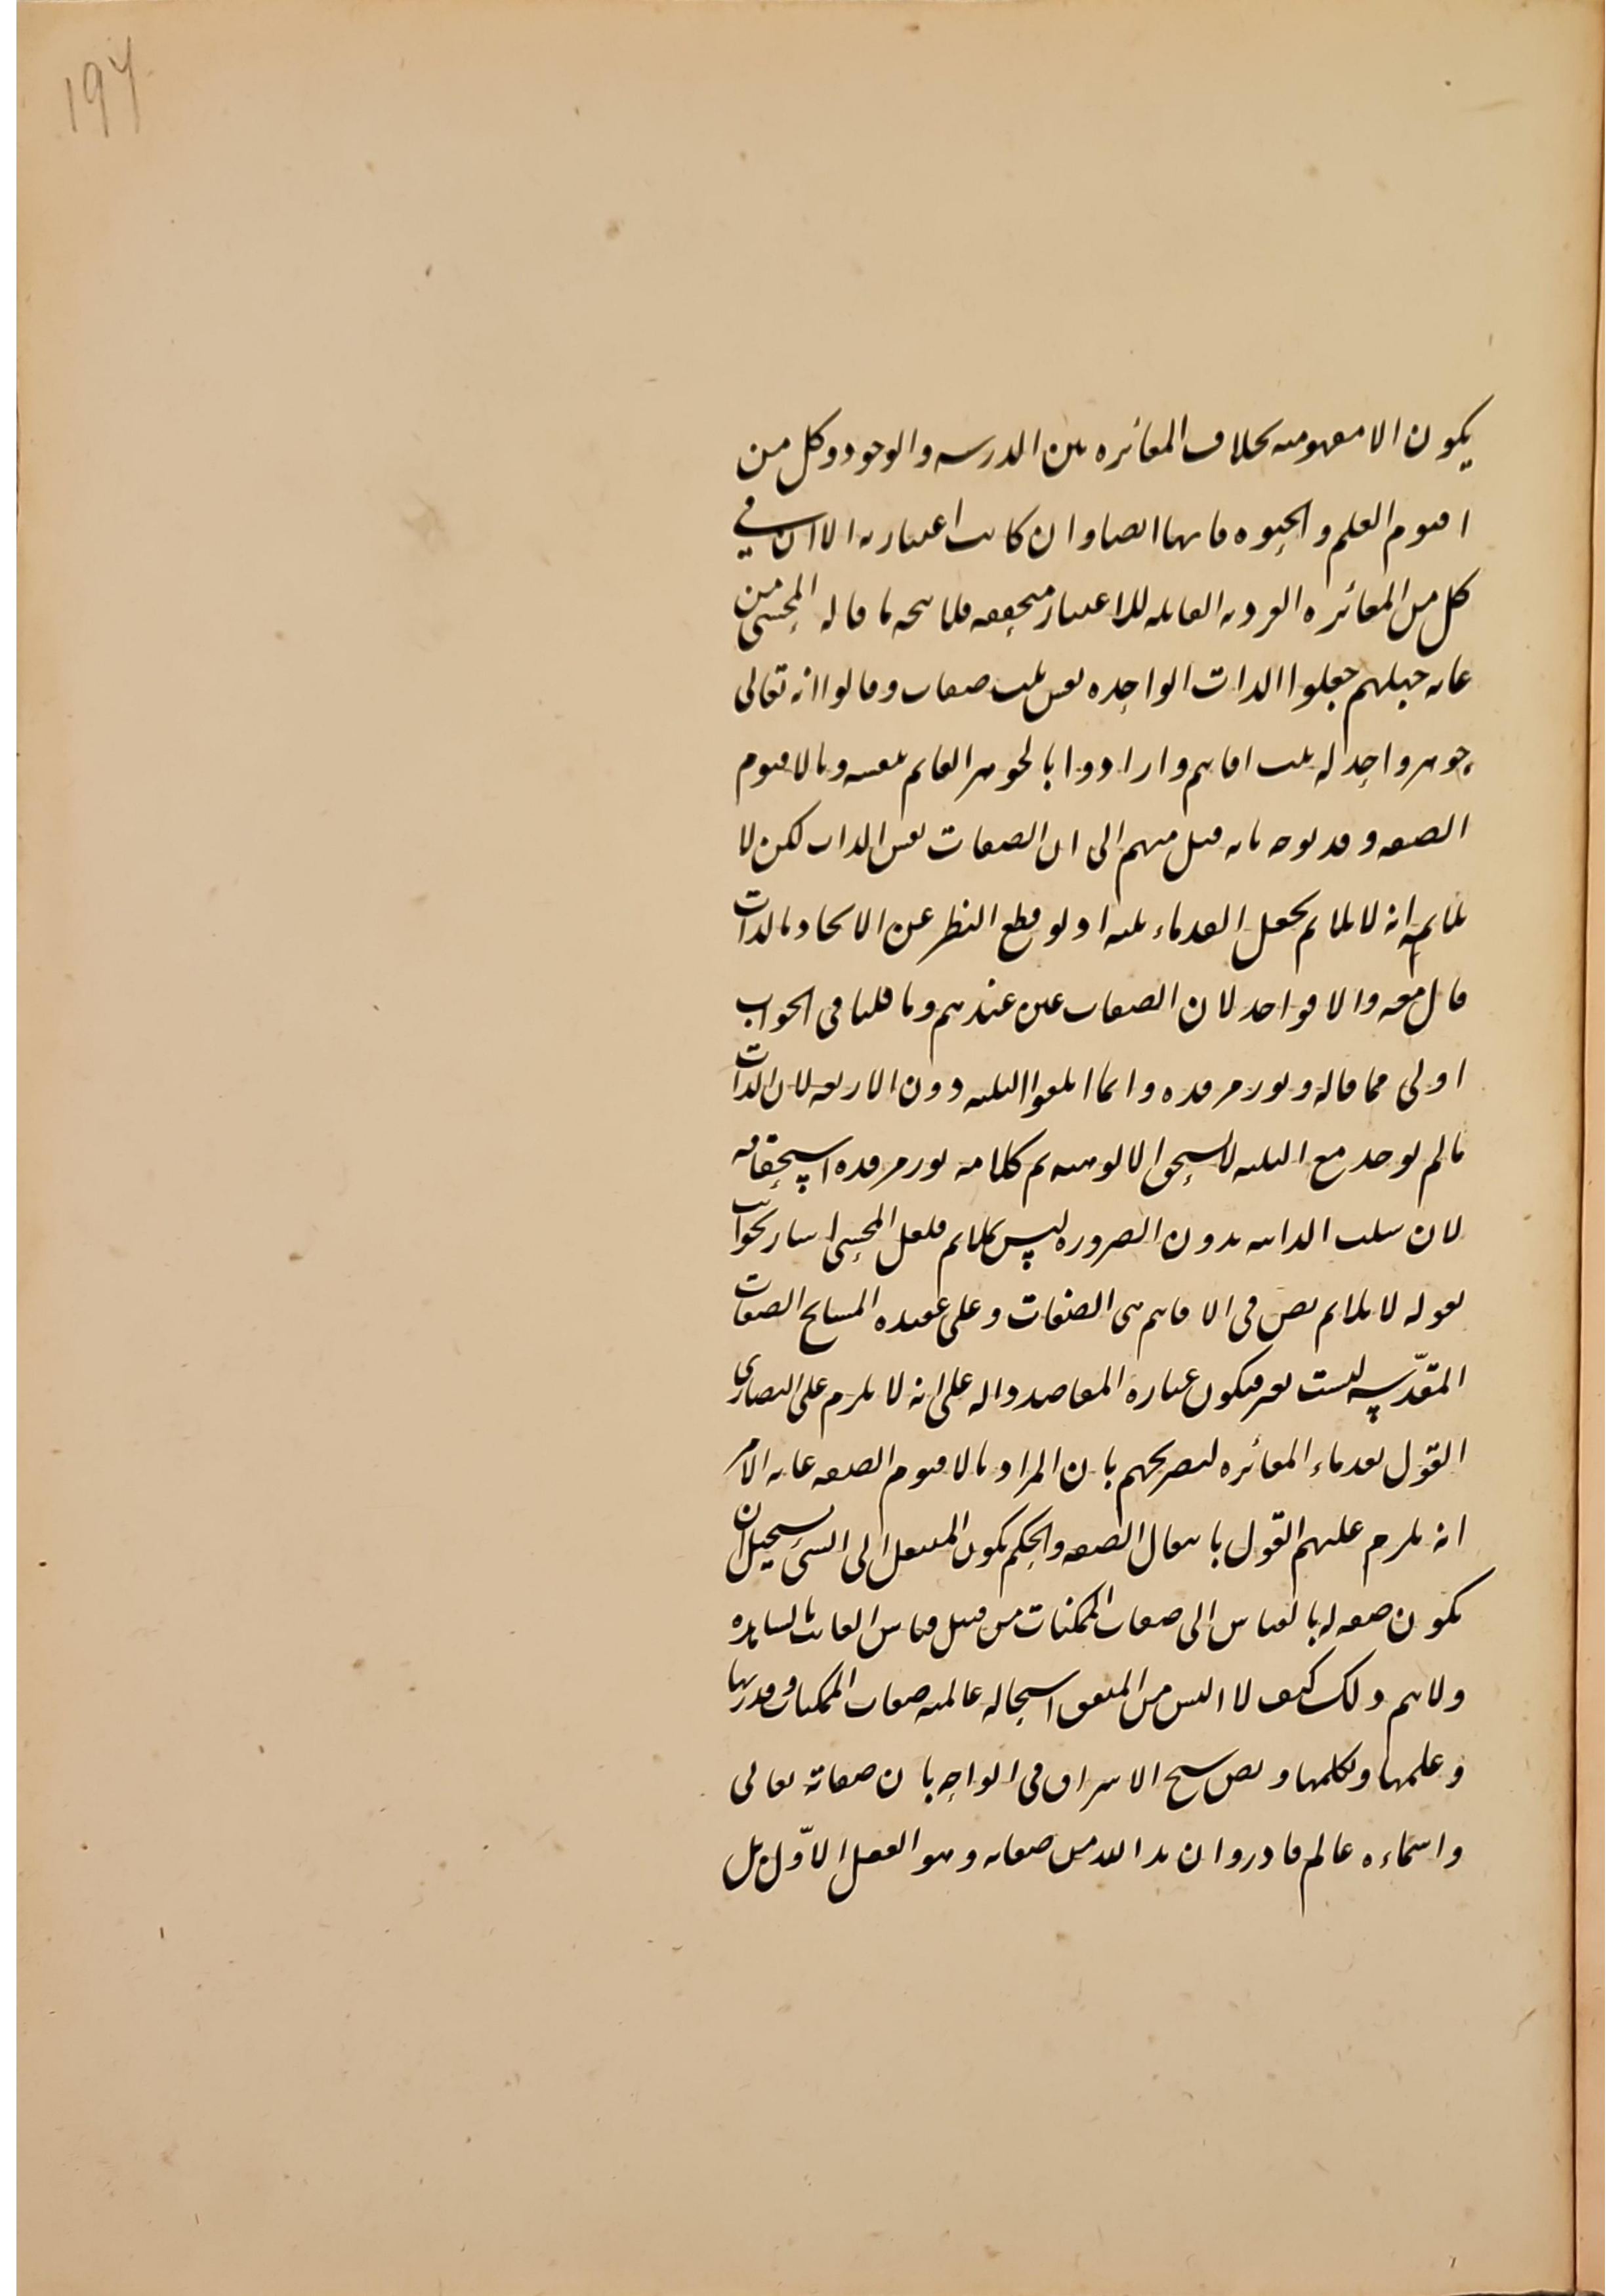 ۱۹۷
يكون الا مفهوميه بخلاف المغائره بين القدرسه والوجود وكل من
اقنوم العلم والحيوه فانها ايضا وان كانت اعتباريه الا ان في
كل من المغائره الفرديه القابله للاعتبار متحققه فلا يتجه ما قاله المحشى من
غايه جهلهم جعلوا الذات الواحده نفس ثلث صفات وقالوا انه تعالى
جوهر واحد له ثلث اقانيم وارادوا بالجوهر القائم بنفسه وبالاقنوم
الصفه وقد يوجه بانه ميل منهم الى ان الصفات نفس الذات لكن لا
يلايمه انه لا يلايم بجعل القدماء ثلثه اذ لو قطع النظر عن الاتحاد بالذات
قال معه والا فواحد لان الصفات عين عندهم وما قلنا فى الجواب
اولى مما قاله ونور مرقده وانما اثبتوا الثلثه دون الاربعه لان الذات
مالم يوجد مع الثلثه لا يستحق الالوهيه تم كلامه نور مرقده استحقاقه
لان سلب الذاتيه بدون الضروره ليس بملايم فلعل المحشى اشار بجواب
بقوله لا يلايم نص فى الاقانيم هى الصفات وعلى عقيده المشايخ الصفات
المقدّسيه ليست بغير فيكون عباره المقاصد داله على انه لا يلزم على النصارى
القول بقدماء المغائره لتصريحهم بان المراد بالاقنوم الصفه غايه الامر
انه يلزم عليهم القول بانتقال الصفه والحكم بكون المنتقل الى الشئ يستحيل ان
يكون صفه له بالقياس الى صفات الممكنات من قبيل قياس الغائب بالشاهد
ولا يتم ذلك كيف لا اليس من المتفق استحاله عالميه صفات الممكنات وقدرتها
وعلمها وتكلمها ونص شيخ الاشراق فى الواحه بان صفاته تعالى
واسماءه عالم قادر وان يدا لله من صفاته وهو العقل الاوّل بل